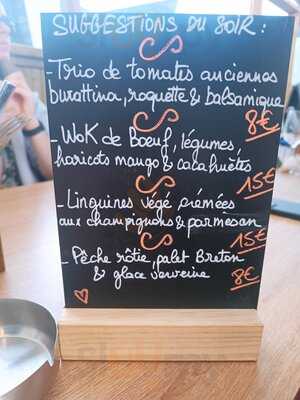 SUGGESTIONS DU SOIR :
- Trio de tomates anciennes
burattina, roquette & balsamique
8€
- Wok de Boeuf, légumes,
haricots mungo & cacahuètes
15€
- Linguines Végé crémées
aux champignons & parmesan
15€
- Pêche rôtie, palet Breton
& glace verveine
8€